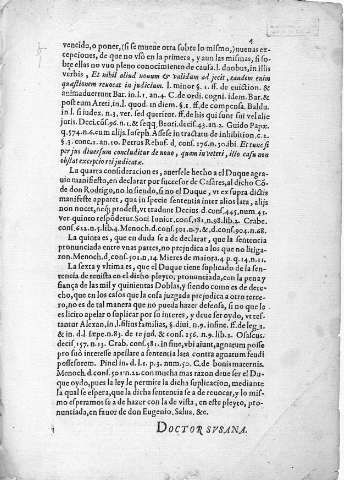 4
vencido, o poner, (si se mueue otra sobre lo mismo,) nueuas ex-
cepciones, de que no vsò en la primera, y aun las mismas, si so-
bre ellas no vuo pleno conocimiento de causa. l. duobus, in illis
verbis, Et nihil aliud nouum & validum adjecit, eandem enim
quæstionem reuocat in judicium. l. minor § 1. ff. de euiction. &
animaduertunt Bar. in l. 1. an 4. C. de ordi. cogni. idem. Bar. &
post eum Areti, in l. quod in diem. §. 1. ff. de compensa. Baldu.
in l. si iudex. n. 3. ver. sed quæritur. ff. de his qui sunt sui vel alie
juris. Deci. cōs. 96. n. 1. & seqq. Bero. deci. 43. in 2. Guido Papæ
q. 574. n. 6. cum alijs. Ioseph. A sese in tractatu de inhibition. c. 2.
§. 3. conc. 1. an. 10. Petrus Rebuf. d. cons. 176. n. 30. ibi. Et tunc si
per jus diuersum concluditur de nouo, quam in veteri, isto casu non
obstat exceptio rei judicatæ.
La quarta consideracion es, auersele hecho a el Duque agra-
uio manifiesto, en declarar por sucessor de Casares, al dicho Cō-
de don Rodrigo, no lo siendo, ni el Duque, vt ex supra dictis
manifeste apparet, quia in specie sententia inter alios lata, alijs
non nocet, neq; prodest, vt tradunt Decius d. cons. 445. num. 41.
ver. quinto respōdetur. Soci Iunior. cons. 181. n. 98. lib. 2. Crabe.
cons. 622. n. 4. lib. 4. Menoch. d. cons. 501. n. 7, &, d. cons. 904. n. 68.
La quinta es, que en duda se a de declarar, que la sentencia
pronunciada entre vnas partes, no prejudica a los que no litiga-
ron. Menoch. d. cons. 501. n. 14. Mieres de maiora. 4. p. q. 14. n. 11.
La sexta y vltima es, que el Duque tiene suplicado de la sen-
tencia de reuista en el dicho pleyto, pronunciada, con la pena y
fiança de las mil y quinientas Doblas, y siendo como es de dere-
cho, que en los casos que la cosa juzgada prejudica a otro terce-
ro, no es de tal manera que no pueda hazer defensa, si no que le
es licito apelar o suplicar por su interes, y deue ser oydo, vt tes-
tantur Alexan, in l. filius familias, §. diui, n. 9. in fine. ff. de leg. 1.
& in. d. l. sæpe. n. 83. de re jud. & cons. 236 n. 9. lib. 2. Ofascus.
decis. 157. n. 13. Crab. cons. 381. in fine, vbi aiunt, agnatum posse
pro suò interesse apellare a sententia lata contra agnatum feudi
possessorem. Pinel in. d. l. 1. p. 3. num. 50. C. de bonis maternis.
Menoch. d. cons. 501 n. 22. con mucha mas razon diue ser el Du-
que oydo, pues la ley le permite la dicha suplicacion, mediante
la qual se espera, que la dicha sentencia se a de reuocar, y lo mis-
mo esperamos se a de hazer con la de vista, en este pleyto, pro-
nunciada, en fauor de don Eugenio, Salua, &c.
DOCTOR SVSANA.